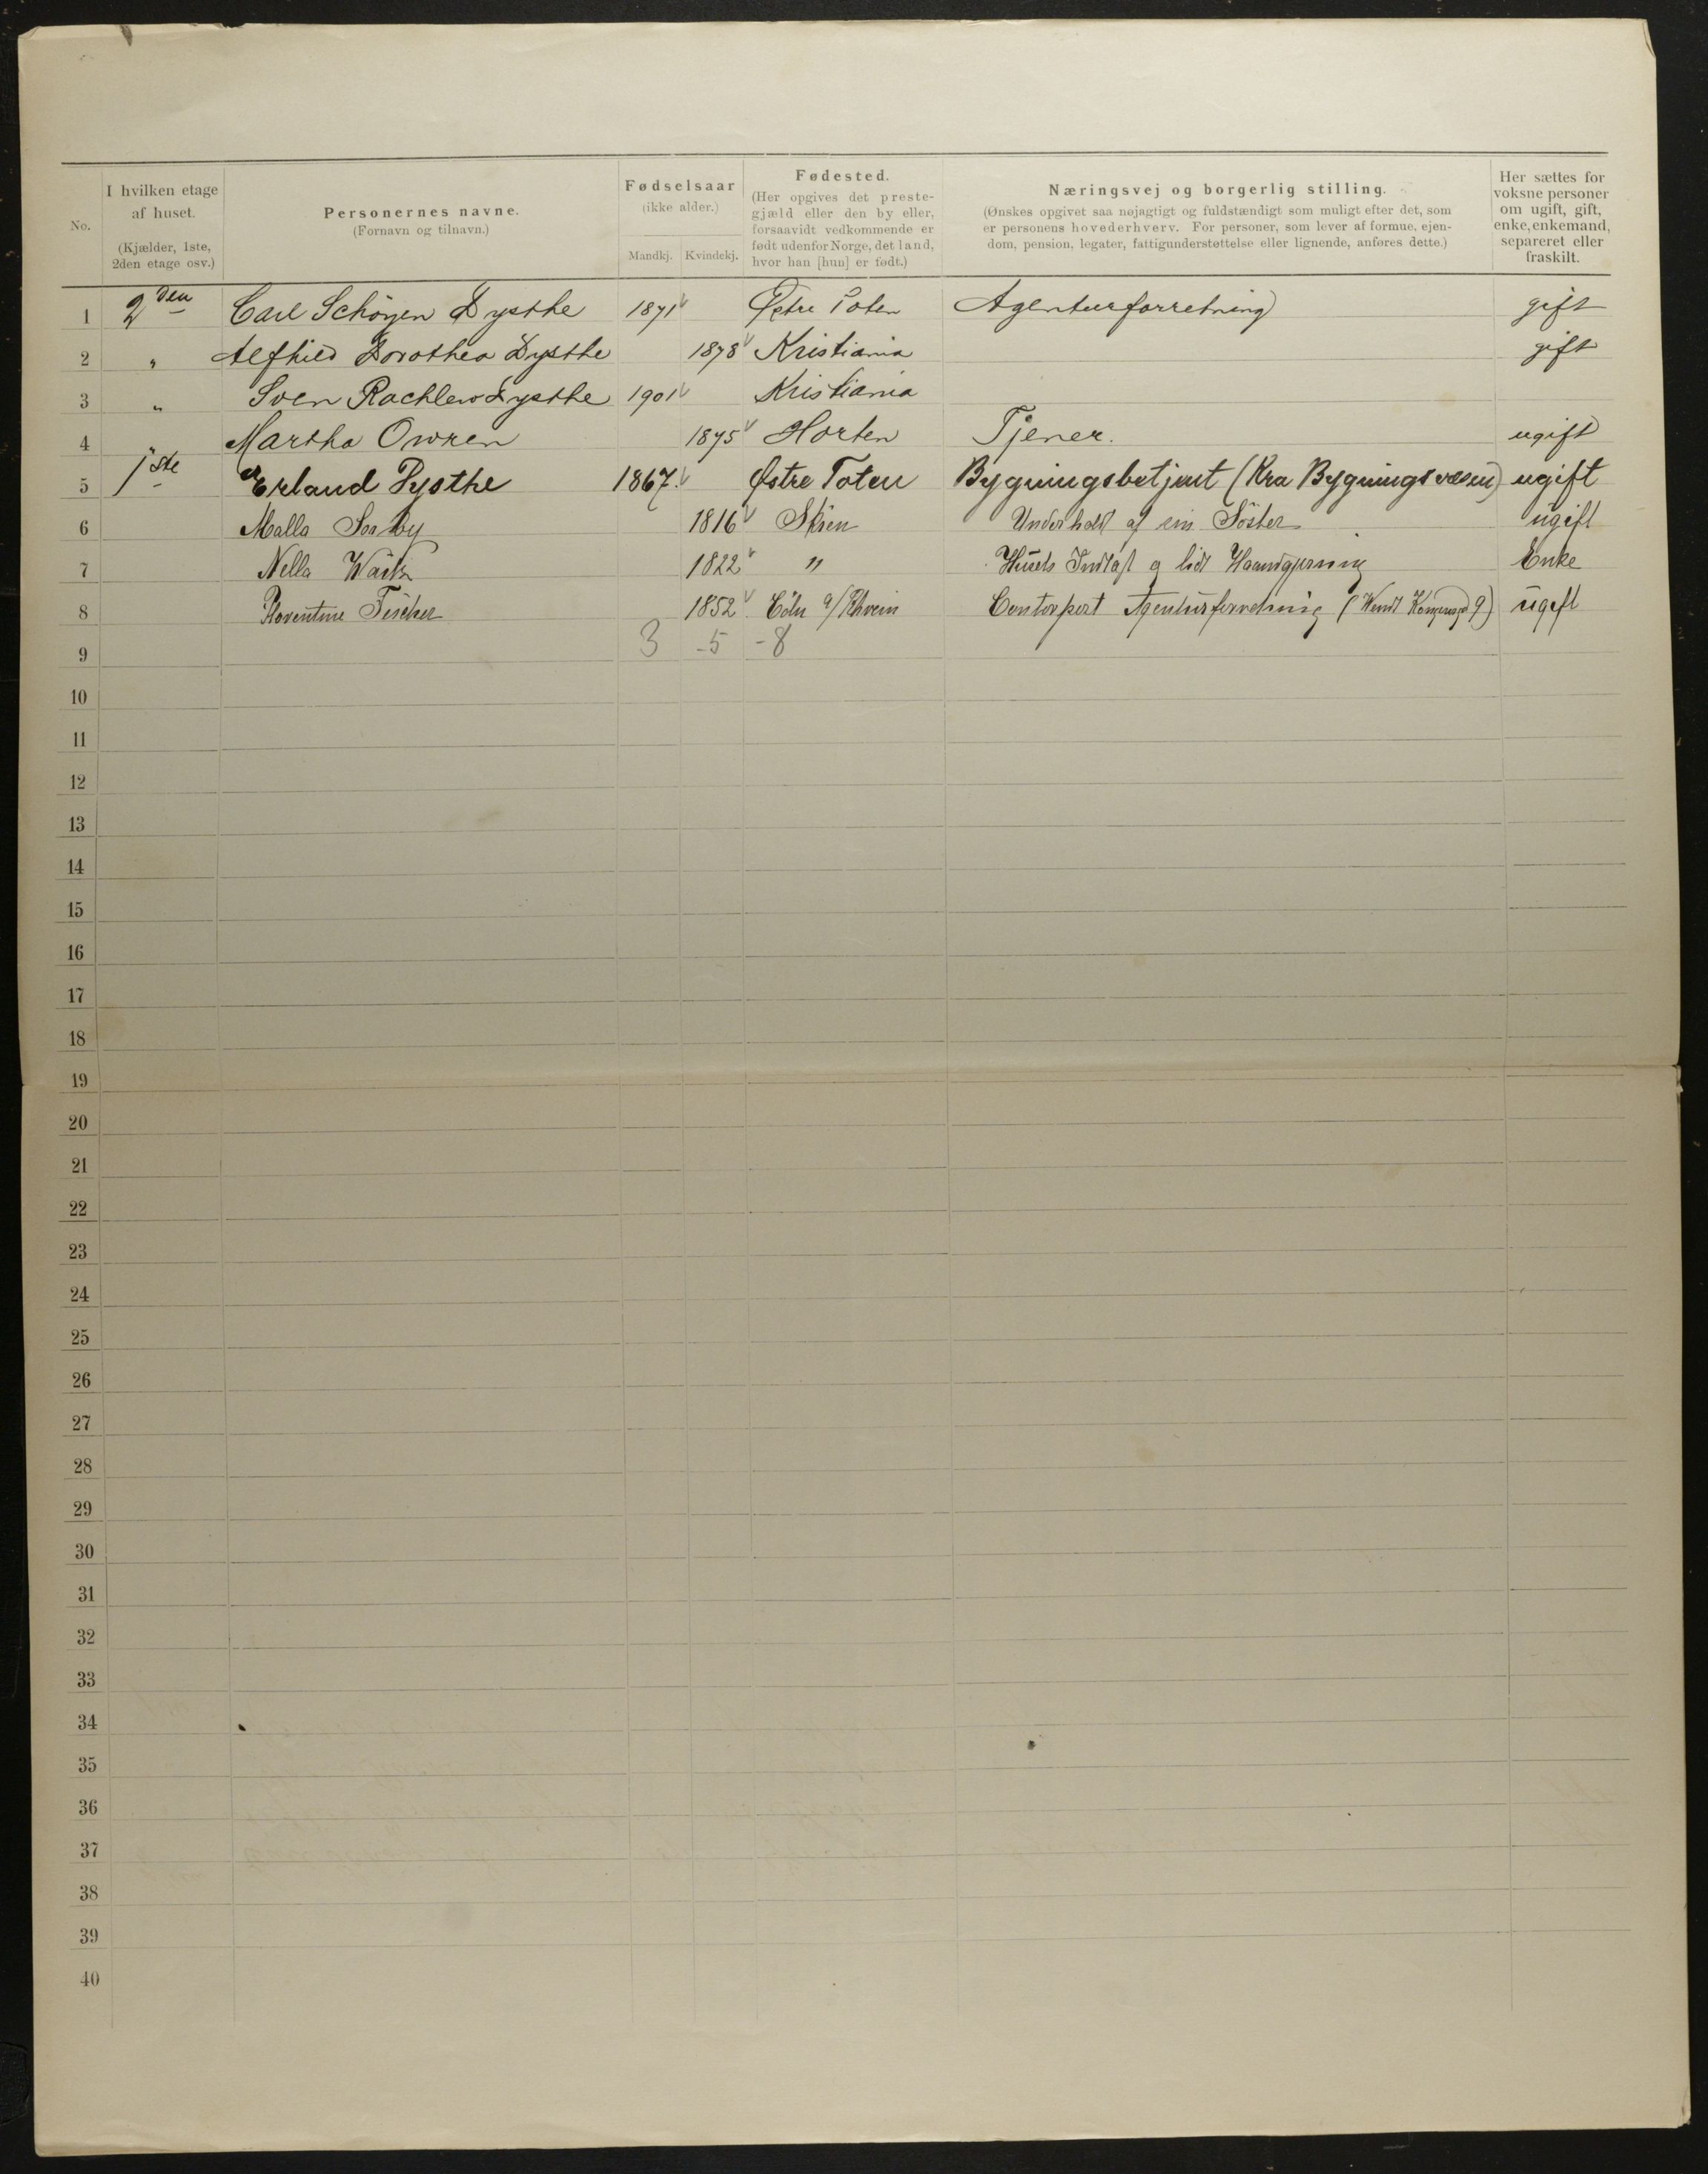 No.
I hvilken etage af huset.
(Kjælder, 1ste, 2den etage osv.)
Personernes navne.
(Fornavn og tilnavn.)
Fødselsaar
(ikke alder.)
Mandkj. Kvindekj.
Fødested.
(Her opgives det prestegjæld eller den by eller, forsaavidt vedkommende er født udenfor Norge, det land, hvor han [hun] er født.)
Næringsvej og borgerlig stilling.
(Ønskes opgivet saa nøjagtigt og fuldstændigt som muligt efter det, som er personens hovederhverv. For personer, som lever af formue, ejendom, pension, legater, fattigunderstøttelse eller lignende, anføres dette.)
Her sættes for voksne personer om ugift, gift, enke, enkemand, separeret eller fraskilt.
1 2den Carl Schöyen Dysthe 1871 Østre Toten Agenturforretning gift
2 " Alfhild Dorothea Dysthe 1878 Kristiania gift
3 " Sven Rachlew Dysthe 1901 Kristiania
4 " Martha Owren 1875 Horten Tjener. ugift
5 1ste Erland Dysthe 1867. Østre Toten Bygningsbetjent (Kra Bygningsvæsen) ugift
6 Malla 1816 Skien Underholdt af sin Söster ugift
7 Nella 1822 " Husets Indtägt og lidt Haandgjerning Enke
8 Florentine Fischer 1852 Cöln a/Rhein Contorpert Agenturforretning ( 9) ugift
9 3 - 5 - 8
10
11
12
13
14
15
16
17
18
19
20
21
22
23
24
25
26
27
28
29
30
31
32
33
34
35
36
37
38
39
40